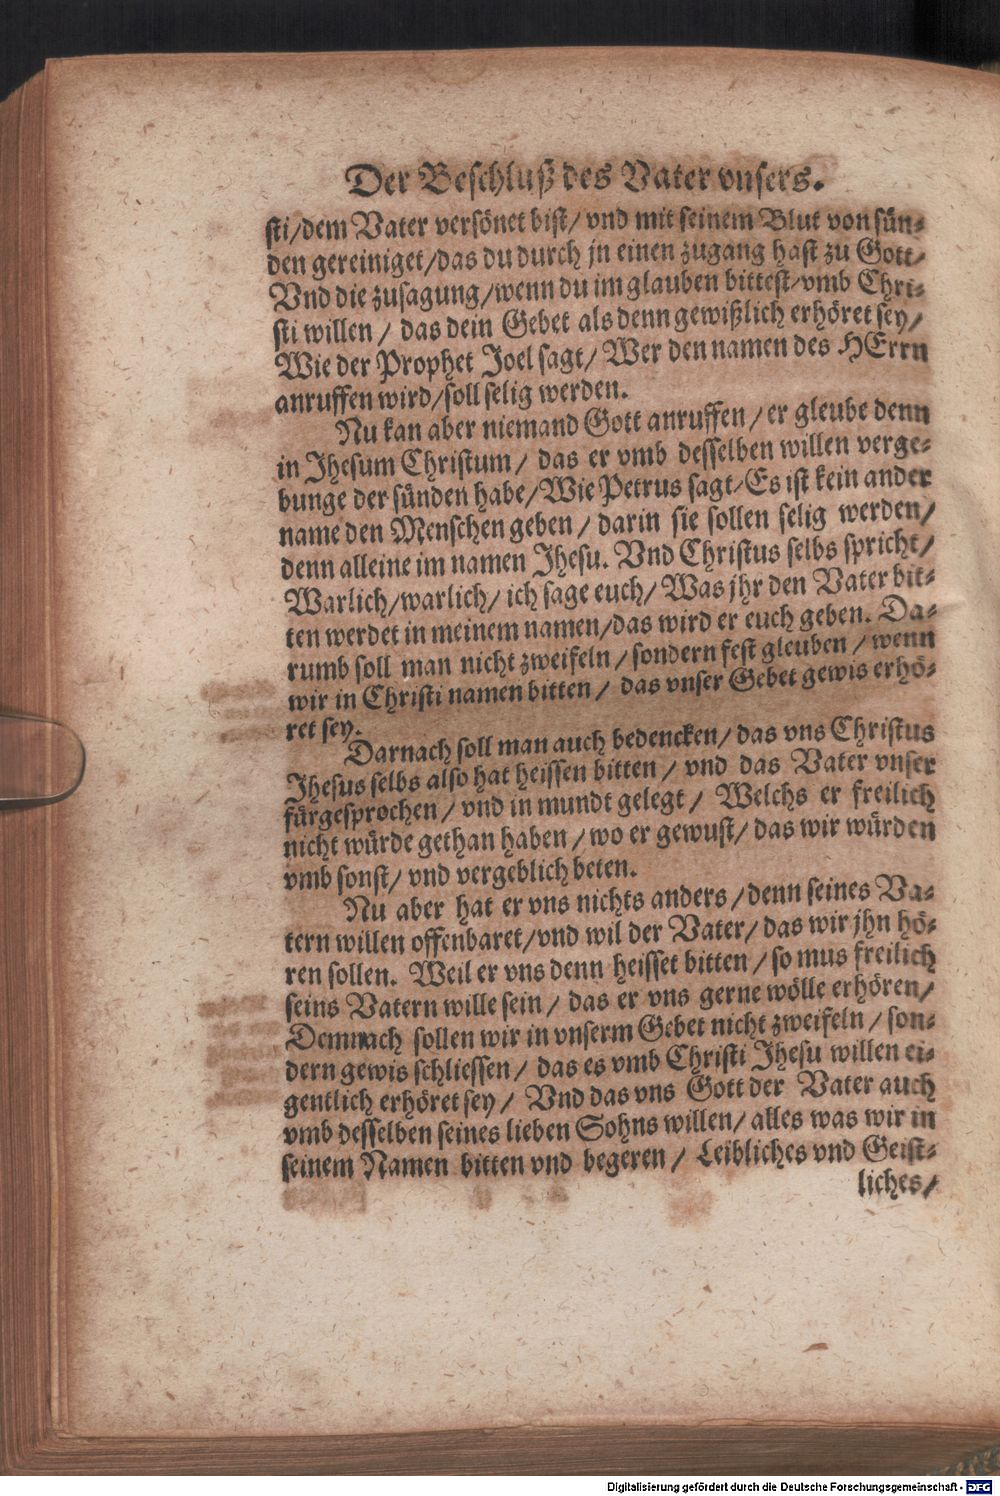 Der Beschluß des Vater vnsers.
sti/dem Vater versönet bist/ vnd mit seinem Blut von sün-
den gereiniget/das du durch jn einen zugang hast zu Gott/
Vnd die zusagung/wenn du im glauben bittest/vmb Chri-
sti willen / das dein Gebet als denn gewißlich erhöret sey/
Wie der Prophet Joel sagt/ Wer den namen des HErrn
anruffen wird/soll selig werden.
Nu kan aber niemand Gott anruffen/er gleube denn
in Jhesum Christum / das er vmb desselben willen verge-
bunge der sünden habe/Wie Petrus sagt/Es ist kein ander
name den Menschen geben / darin sie sollen selig werden/
denn alleine im namen Jhesu. Vnd Christus selbs spricht/
Warlich/warlich/ ich sage euch/ Was jhr den Vater bit-
ten werdet in meinem namen/das wird er euch geben. Da-
rumb soll man nicht zweifeln / sondern fest gleuben / wenn
wir in Christi namen bitten / das vnser Gebet gewis erhö-
ret sey.
Darnach soll man auch bedencken/ das vns Christus
Jhesus selbs also hat heissen bitten / vnd das Vater vnser
fürgesprochen / vnd in mundt gelegt / Welchs er freilich
nicht würde gethan haben / wo er gewust/ das wir würden
vmb sonst/ vnd vergeblich beten.
Nu aber hat er vns nichts anders / denn seines Va-
tern willen offenbaret/vnd wil der Vater/ das wir jhn hö-
ren sollen. Weil er vns denn heisset bitten / so mus freilich
seins Vatern wille sein / das er vns gerne wölle erhören/
Demnach sollen wir in vnserm Gebet nicht zweifeln / son-
dern gewis schliessen / das es vmb Christi Jhesu willen ei-
gentlich erhöret sey / Vnd das vns Gott der Vater auch
vmb desselben seines lieben Sohns willen/ alles was wir in
seinem Namen bitten vnd begeren / Leibliches vnd Geist-
liches/
Digitalisierung gefördert durch die Deutsche Forschungsgemeinschaft - DFG